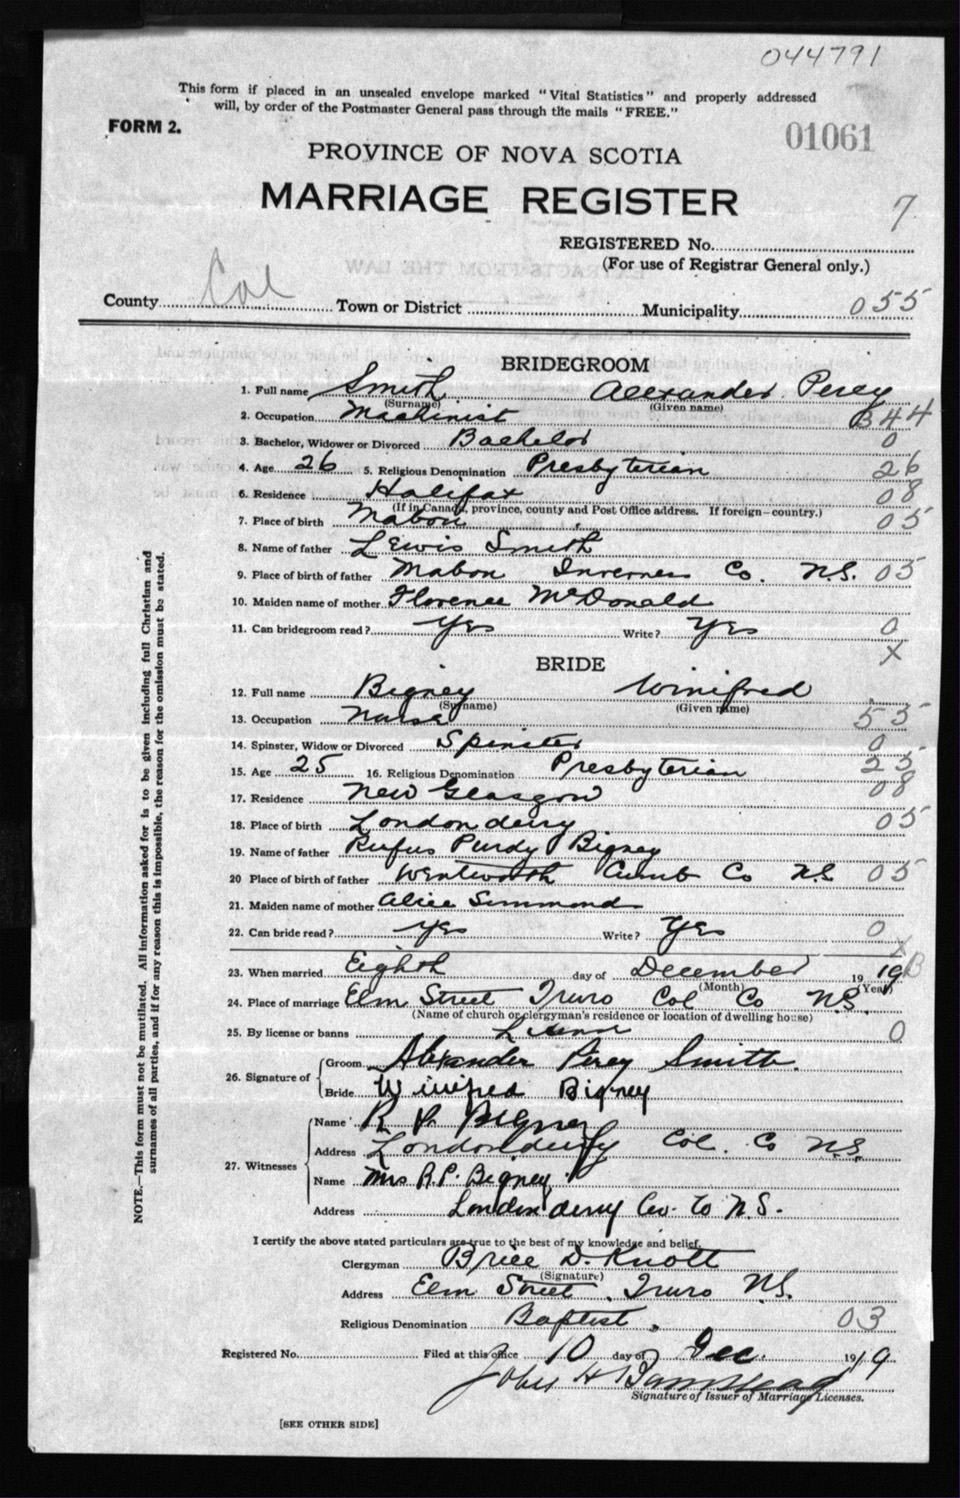 044791
This form if placed in an unsealed envelope marked "Vital Statistics" and properly addressed
will, by order of the Postmaster General pass through the mails "FREE."
FORM 2.
01061
PROVINCE OF NOVA SCOTIA
MARRIAGE REGISTER
7
REGISTERED No.
(For use of Registrar General only.)
County Col Town or District Municipality 055
BRIDEGROOM
1. Full name Smith Alexander Percy
(Surname) (Given name)
2. Occupation Machinist B44
3. Bachelor, Widower or Divorced Bachelor 0
4. Age 26 5. Religious Denomination Presbyterian 26
6. Residence Halifax 08
(If in Canada, province, county and Post Office address. If foreign—country.)
7. Place of birth Mabou 05
8. Name of father Lewis Smith
9. Place of birth of father Mabou Inverness Co. N.S. 05
10. Maiden name of mother Florence McDonald
11. Can bridegroom read? Yes Write? Yes 0
X
BRIDE
12. Full name Bigney Winifred
(Surname) (Given name)
13. Occupation Nurse 55
14. Spinster, Widow or Divorced Spinster 0
15. Age 25 16. Religious Denomination Presbyterian 25
17. Residence New Glasgow 08
18. Place of birth Londonderry 05
19. Name of father Rufus Purdy Bigney
20 Place of birth of father Wentworth Cumb Co N.S 05
21. Maiden name of mother Alice Simmonds
22. Can bride read? Yes Write? Yes 0
X
23. When married Eighth day of December 19 19 B
(Month) (Year)
24. Place of marriage Elm Street Truro Col Co N.S.
(Name of church or clergyman's residence or location of dwelling house)
25. By license or banns License 0
26. Signature of
Groom Alexander Percy Smith.
Bride Winifred Bigney
27. Witnesses
Name R P Bigney
Address Londonderry Col. Co N.S.
Name Mrs R.P. Bigney
Address Londonderry Co N.S.
I certify the above stated particulars are true to the best of my knowledge and belief.
Clergyman Brice D. Knott
(Signature)
Address Elm Street. Truro N.S.
Religious Denomination Baptist. 03
Registered No. Filed at this office 10 day of Dec. 1919
John H
Signature of Issuer of Marriage Licenses.
[SEE OTHER SIDE]
NOTE.—This form must not be mutilated. All information asked for is to be given including full Christian and
surnames of all parties, and if for any reason this is impossible, the reason for the omission must be stated.